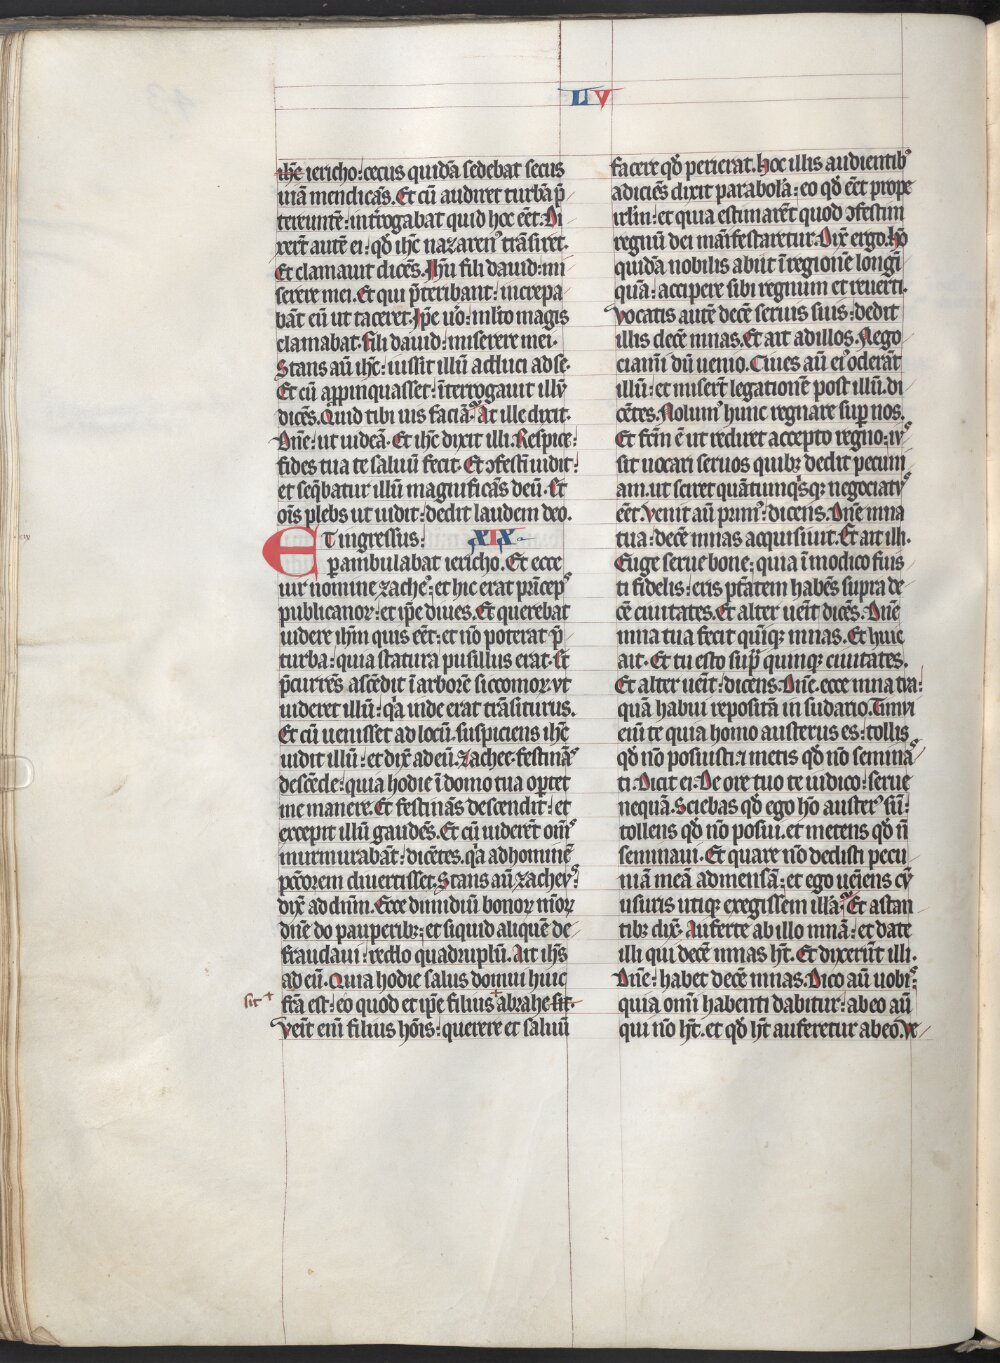 LV
ih̄c iericho: cecus quidā sedebat secus
uiā mendicās. Et cū audiret turbā p̄
tereuntē: int̄rogabat quid hoc eēt. Di
xert̄ autē ei: qđ ih̄c nazaren᷒ trāsiret.
Et clamauit dicēs. Ih̄u fili dauid: mi
serere mei. Et qui p̄teribant: increpa
bāt eū ut taceret. Ip̄e u̾o: ml̄to magis
clamabat. Fili dauid: miserere mei.
Stans aū ih̄c: iussit illū adduci ad se.
Et cū app̄inquasset: īterrogauit illū
dicēs. Quid tibi uis faciā? At ille dixit.
Dn̄e: ut uideā. Et ih̄c dixit illi. Respice:
fides tua te saluū fecit. Et ɔfestī uidit:
et seq̄batur illū magnificās deū. Et
oīs plebs ut uidit: dedit laudem deo.
ET ingressus: XIX.
p̲ambulabat iericho. Et ecce
uir nomine zache᷒: et hic erat prīcep᷒
publicanoꝝ: et ip̄e diues. Et querebat
uidere ih̄m quis eēt: et nō poterat p̄
turba: quia statura pusillus erat. Et
p̄currēs ascēdit ī arborē siccomoꝝ. vt
uideret illū: q̄a inde erat trāsiturus.
Et cū uenisset ad locū. suspiciens ih̄c
uidit illū: et dix̄ ad eū. Zachee festinā᷒
descēde: quia hodie ī domo tua op̲tet
me manere. Et festinās descendit: et
excepit illū gaudēs. Et cū uiderēt om̄᷒
murmurabāt: dicētes. q̄a ad hominē
pc̄c̄orem diuertisset. Stans aū zachev᷒:
dix̄ ad dn̄m. Ecce dimidiū bonoꝝ m̄oꝝ
dn̄e do pauperibꝫ: et siquid aliquē de
fraudaui: reddo quadruplū. Ait ih̄s
ad eū. Quia hodie salus domui huic
sit + fc̄a est: eo quod et ip̄e filius + abrahe sit.
Venīt enī filius hōis: querere et saluū
facere qđ perierat. Hoc illis audientib᷒
adiciēs dixit parabolā: eo qđ eēt prope
irl̄m: et quia estimarēt quod ɔfestim
regnū dei māifestaretur. Dix̄ ergo. Hō
quidā nobilis abiit ī regionē longī
quā: accipere sibi regnum et reuerti.
Vocatis autē decē seruis suis: dedit
illis decē mnas. Et ait ad illos. Nego
ciamī dū uenio. Ciues aū ei᷒ oderāt
illū: et miserūt legationē post illū. di
cētes. Nolum᷒ hunc regnare sup̲ nos.
Et fc̄m ē ut rediret accepto regno: iv᷒
sit uocari seruos quibꝫ dedit pecuni
am. ut sciret quātum q̄sqꝫ negociatv᷒
eēt. Venit aū prim᷒: dicens. Dn̄e mna
tua: decē mnas acquisiuit. Et ait illi.
Euge serue bone: quia ī modico fuis
ti fidelis: eris ptātem habēs supra de
cē ciuitates. Et alter uēit dicēs. Dn̄e
mna tua fecit quīqꝫ mnas. Et huic
ait. Et tu esto sup̲ quinqꝫ ciuitates.
Et alter uēit: dicens. Dn̄e. ecce mna tua:
quā habui repositā in sudario. Timvi
enī te quia homo austerus es: tollis
qđ nō posuisti ⁊ metis qđ nō seminā᷒
ti. Dicit ei. De ore tuo te iudico: serue
nequā. Sciebas qđ ego hō auster᷒ sū:
tollens qđ nō posui. et metens qđ n̄
seminaui. Et quare nō dedisti pecu
niā meā ad mensā: et ego ueīens cv̄
usuris utiqꝫ exegissem illā? Et astan
tibꝫ dix̄. Auferte ab illo mnā: et date
illi qui decē mnas h̄t. Et dixerūt illi.
Dn̄e: habet decē mnas. Dico aū uobi᷒:
quia omī habenti dabitur: ab eo aū
qui nō h̄t. et qđ h̄t auferetur ab eo. Ve